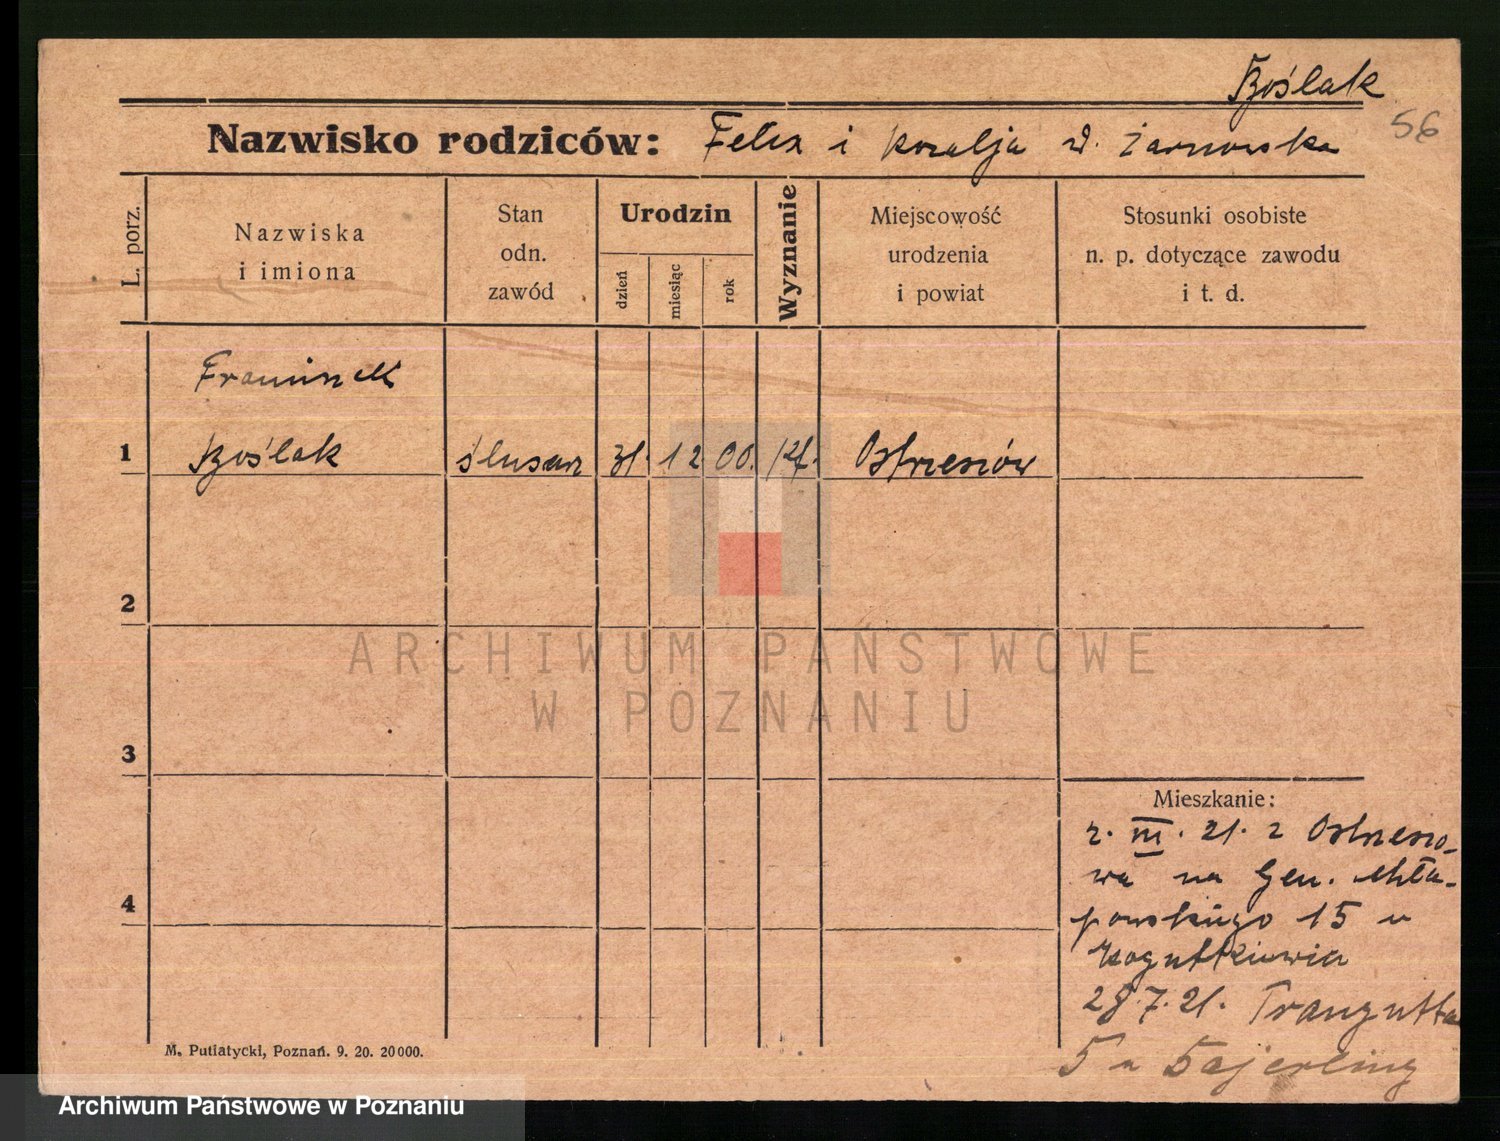 56
Nazwisko rodziców: Felix i
L. porz.
Nazwiska
i imiona
Stan
odn.
zawód
Urodzin
dzień
miesiąc
rok
Wyznanie
Miejscowość
urodzenia
i powiat
Stosunki osobiste
n. p. dotyczące zawodu
i t. d.
1
31. 12 00. Ostrzeszów
2
3
4
ARCHIWUM PAŃSTWOWE
W POZNANIU
Mieszkanie:
2. III. 21. z Ostrzeszo-
wa na Gen. Chła-
powskiego 15 u
28.7.21. Traugutta
5 u
M. Putiatycki, Poznań. 9. 20. 20000.
Archiwum Państwowe w Poznaniu